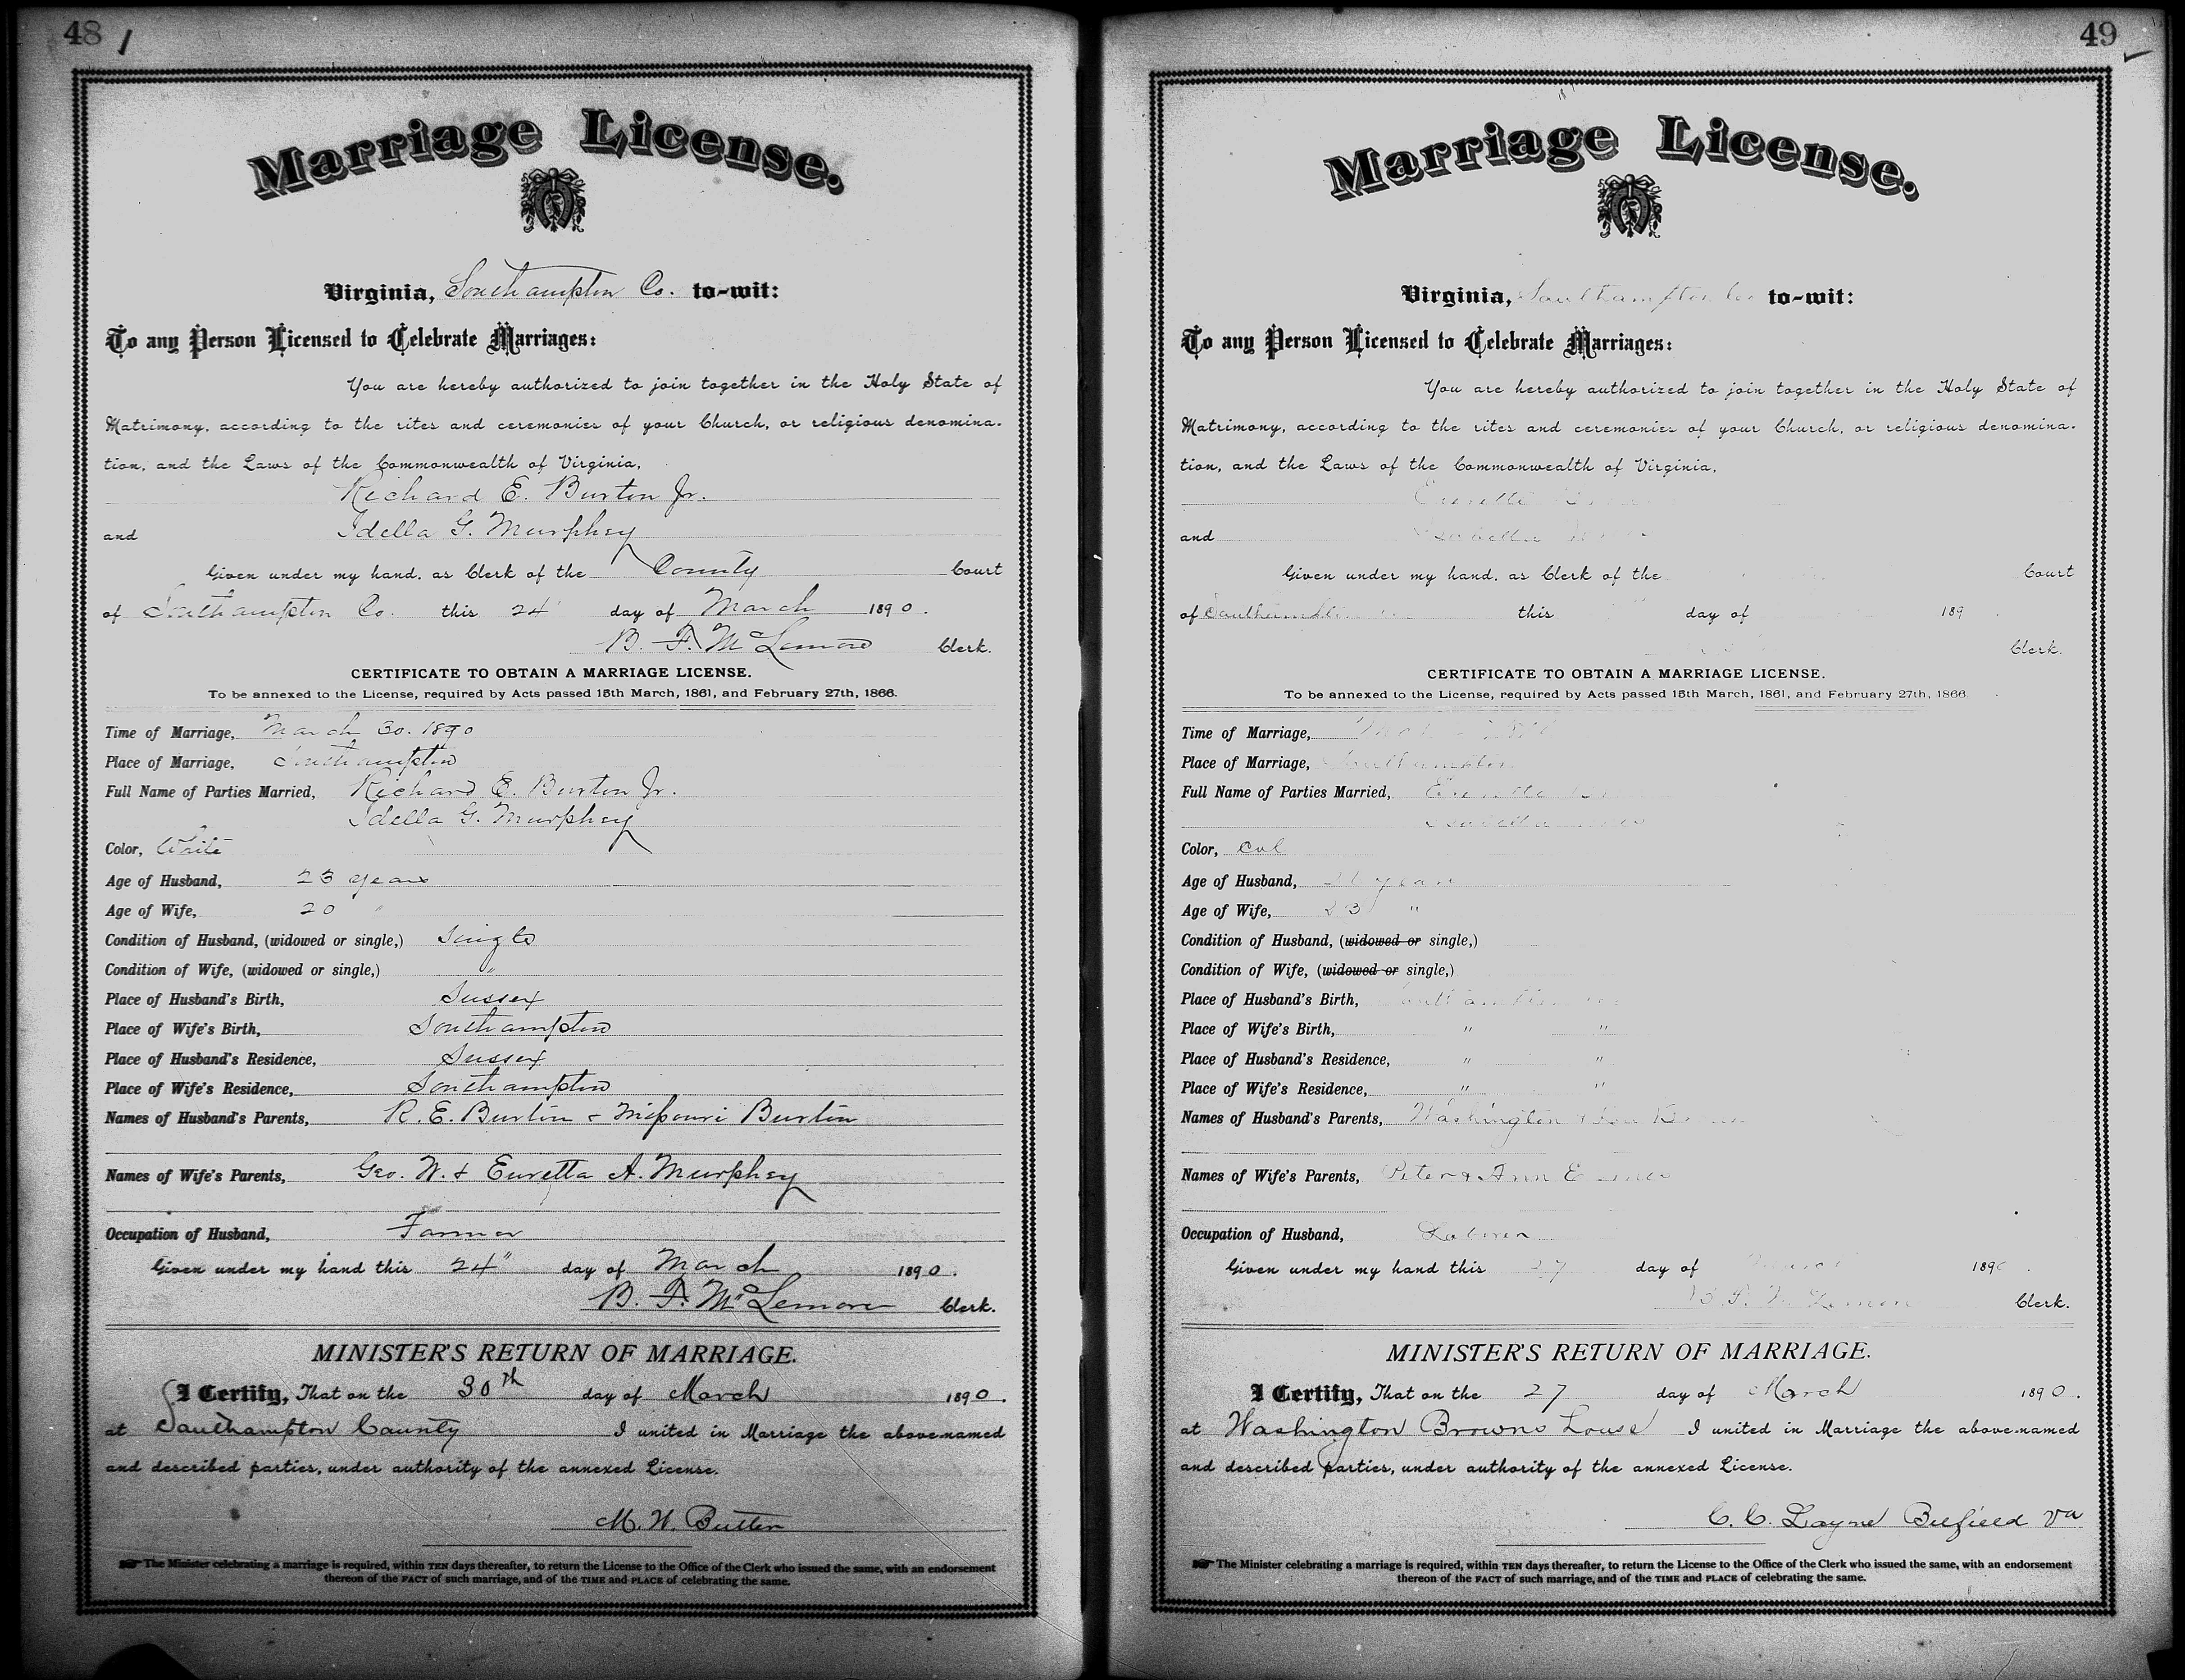 48
Marriage License.
Virginia, Southampton Co. to-wit:
To any Person Licensed to Celebrate Marriages:
You are hereby authorized to join together in the Holy State of
Matrimony, according to the rites and ceremonies of your Church, or religious denomina-
tion, and the Laws of the Commonwealth of Virginia,
Richard E. Burton Jr.
and Idella G. Murphey
Given under my hand, as Clerk of the County Court
of Southampton Co. this 24 day of March 1890.
B. F. McLemore Clerk.
CERTIFICATE TO OBTAIN A MARRIAGE LICENSE.
To be annexed to the License, required by Acts passed 15th March, 1861, and February 27th, 1866.
Time of Marriage, March 30. 1890
Place of Marriage, Southampton
Full Name of Parties Married, Richard E. Burton Jr.
Idella G. Murphey
Color, White
Age of Husband, 23 years
Age of Wife, 20 "
Condition of Husband, (widowed or single,) Single
Condition of Wife, (widowed or single,) "
Place of Husband's Birth, Sussex
Place of Wife's Birth, Southampton
Place of Husband's Residence, Sussex
Place of Wife's Residence, Southampton
Names of Husband's Parents, R. E. Burton & Missouri Burton
Names of Wife's Parents, Geo. W. & Euretta A. Murphey
Occupation of Husband, Farmer
Given under my hand this 24" day of March 1890.
B. F. McLemore Clerk.
MINISTER'S RETURN OF MARRIAGE.
I Certify, That on the 30th day of March 1890.
at Southampton County I united in Marriage the above-named
and described parties, under authority of the annexed License.
M. W. Butler
The Minister celebrating a marriage is required, within TEN days thereafter, to return the License to the Office of the Clerk who issued the same, with an endorsement
thereon of the FACT of such marriage, and of the TIME and PLACE of celebrating the same.
49
Marriage License.
Virginia, Southampton Co to-wit:
To any Person Licensed to Celebrate Marriages:
You are hereby authorized to join together in the Holy State of
Matrimony, according to the rites and ceremonies of your Church, or religious denomina-
tion, and the Laws of the Commonwealth of Virginia,
Everette
and Isabella
Given under my hand, as Clerk of the Court
of Southampton this day of 189
Clerk.
CERTIFICATE TO OBTAIN A MARRIAGE LICENSE.
To be annexed to the License, required by Acts passed 15th March, 1861, and February 27th, 1866.
Time of Marriage,
Place of Marriage, Southampton
Full Name of Parties Married, Everette
Isabella
Color, Col
Age of Husband, years
Age of Wife, 23 "
Condition of Husband, (widowed or single,)
Condition of Wife, (widowed or single,)
Place of Husband's Birth, Southampton
Place of Wife's Birth, " "
Place of Husband's Residence, " "
Place of Wife's Residence, " "
Names of Husband's Parents, Washington &
Names of Wife's Parents, Peter & Ann
Occupation of Husband, Laborer
Given under my hand this 27 day of March 1890.
Clerk.
MINISTER'S RETURN OF MARRIAGE.
I Certify, That on the 27 day of March 1890.
at Washington Browns house I united in Marriage the above-named
and described parties, under authority of the annexed License.
C. C. Layne Belfield Va
The Minister celebrating a marriage is required, within TEN days thereafter, to return the License to the Office of the Clerk who issued the same, with an endorsement
thereon of the FACT of such marriage, and of the TIME and PLACE of celebrating the same.